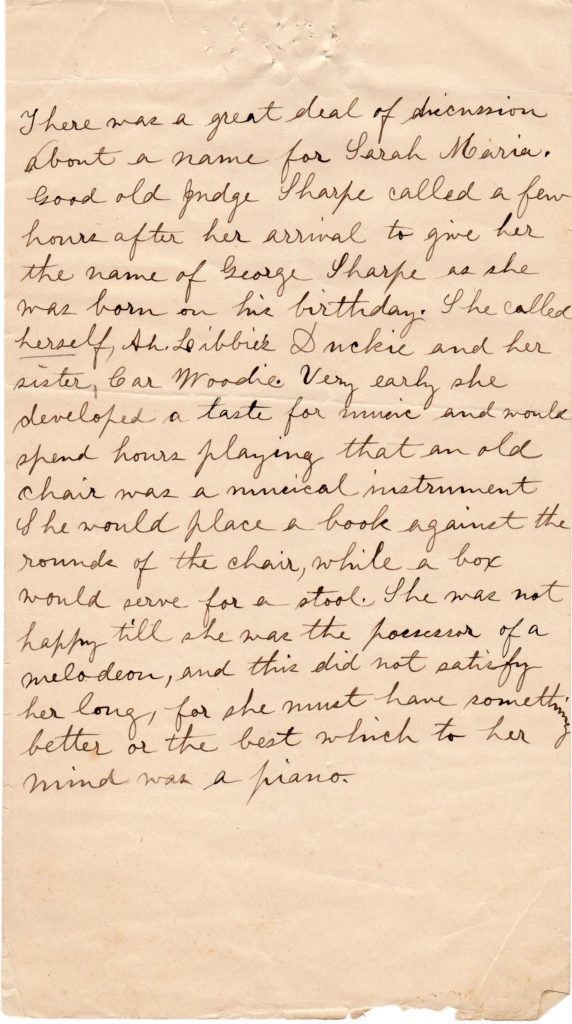 There was a great deal of discussion
about a name for Sarah Maria.
Good old Judge Sharpe called a few
hours after her arrival to give her
the name of George Sharpe as she
was born on his birthday. She called
herself, Ah. Libbiek Duckie and her
sister, Car Woodie. Very early she
developed a taste for music and would
spend hours playing that an old
chair was a musical instrument
She would place a book against the
rounds of the chair, while a box
would serve for a stool. She was not
happy till she was the possessor of a
melodeon, and this did not satisfy
her long, for she must have something
better or the best which to her
mind was a piano.